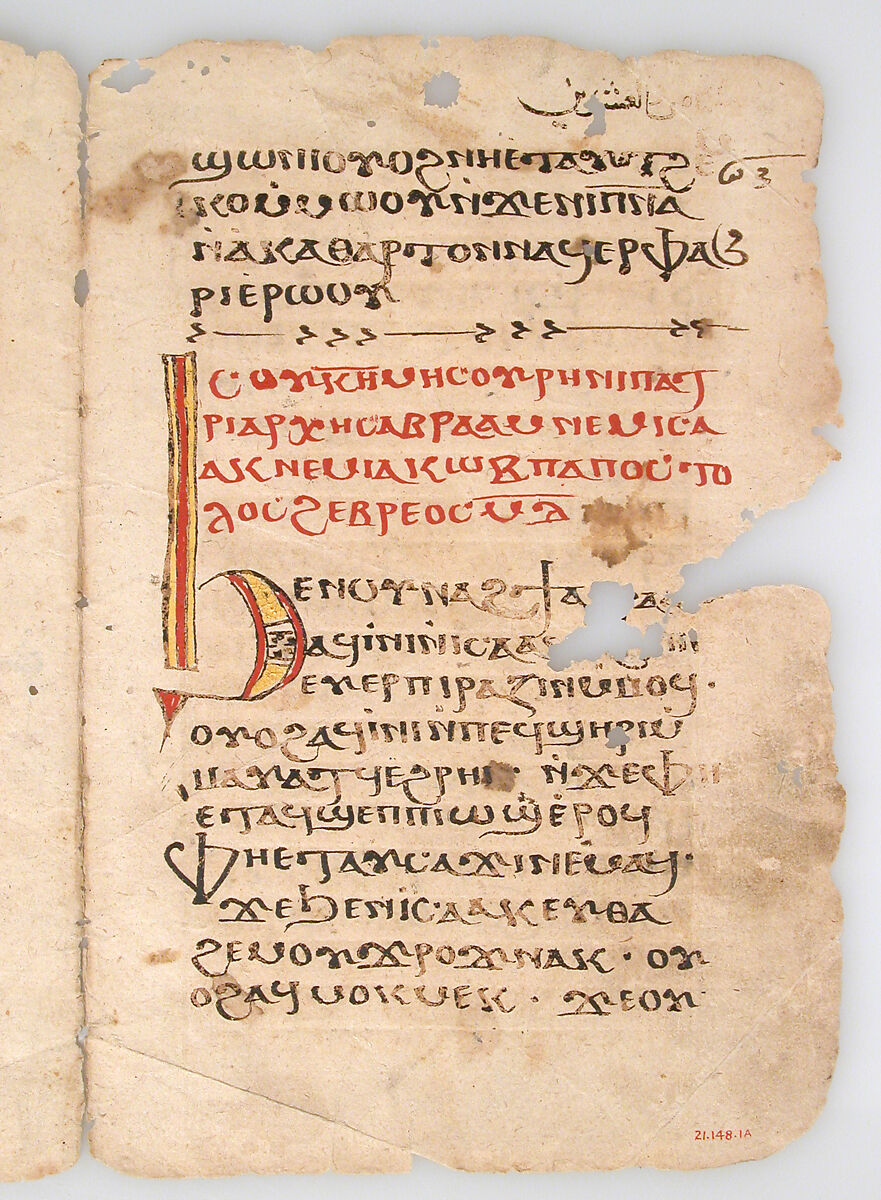 ϣⲱⲛⲓⲟⲩⲟϩⲛⲏⲉⲧⲁⲩⲧϩⲉ
ⲕⲟⲙⲙⲱⲟⲩⲛ̀ϫⲉⲛⲓⲡ̅ⲛ̅ⲁ̅
ⲛ̀ⲁⲕⲁⲑⲁⲣⲧⲟⲛⲛⲁϥⲉⲣⲫⲁϧ
ⲣⲓⲉⲣⲱⲟⲩ
ⲥⲟⲩⲕ̅ⲏ̅ⲙⲏⲥⲟⲩⲣⲏⲛⲓⲡⲁⲧ
ⲣⲓⲁⲣⲭⲏⲥⲁⲃⲣⲁⲁⲙⲛⲉⲙⲓⲥⲁ
ⲁⲕⲛⲉⲙⲓⲁⲕⲱⲃⲡⲁⲡⲟⲥⲧⲟ
ⲗⲟⲥϩⲉⲃⲣⲉⲟⲥ
ϧⲉⲛⲟⲩⲛⲁϩϯⲁ
ⲁϥⲓⲛⲓⲛ̀ⲓⲥⲁⲁ
ⲉⲩⲉⲣⲡⲓⲣⲁⲍⲓⲛⲙⲙⲟϥ·
ⲟⲩⲟϩⲁϥⲓⲛⲓⲙ̀ⲡⲉϥϣⲏⲣⲓⲙ̀
ⲙⲁⲩⲁⲧϥⲉϩⲣⲏⲓ· ⲛ̀ϫⲉⲫⲏ
ⲉⲧⲁϥϣⲉⲡⲡⲓⲱϣⲉ̀ⲣⲟϥ
ⲫⲏⲉⲧⲁⲩⲥⲁϫⲓⲛⲉⲙⲁϥ·
ϫⲉϧⲉⲛⲓⲥⲁⲁⲕⲉⲩⲑⲁ
ϩⲉⲙⲟⲩϫⲣⲟϫⲛⲁⲕ· ⲟⲩ
ⲟϩⲁϥⲙⲟⲕⲙⲉⲕ· ϫⲉⲟⲩ
21.148.1A